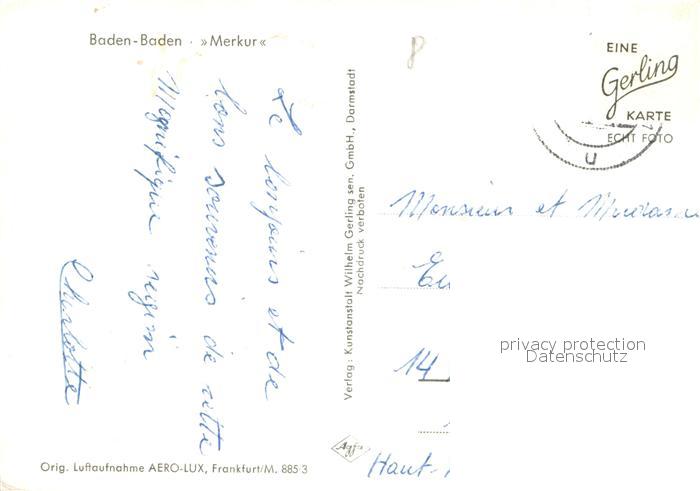 Baden-Baden · »Merkur«
bons souvenirs de cette
Magnifique region
Charlotte
Orig. Luftaufnahme AERO-LUX, Frankfurt/M. 885 3
Verlag: Kunstanstalt Wilhelm Gerling sen. GmbH., Darmstadt
Nachdruck verboten
Agfa
8
EINE
Gerling
KARTE
ECHT FOTO
u
Monsieur et Madame
14
Haut-
privacy protection
Datenschutz